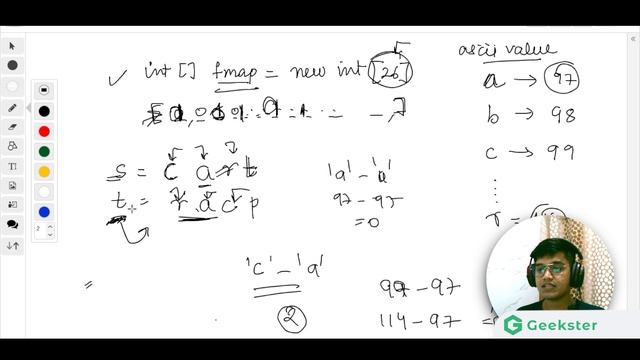 ascii value
✓ int [] fmap = new int [26]
a → 97
b → 98
c → 99
s = c a r t
t = r a c p
'a' - 'a'
97 - 97
= 0
'c' - 'a'
=
99 - 97
2
114 - 97 =
T
2
Geekster